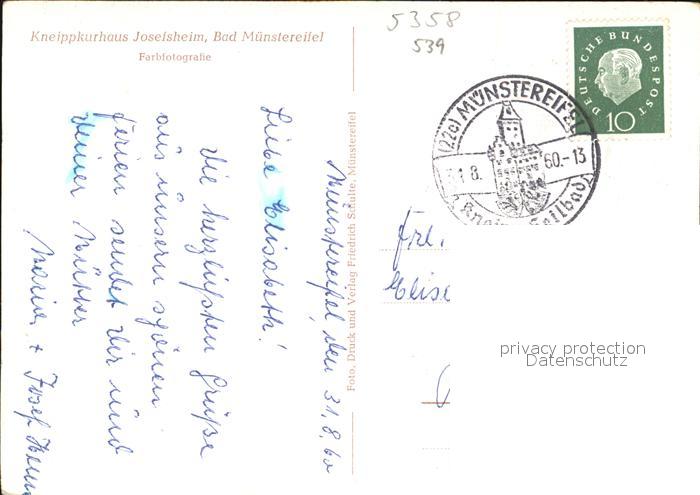 Kneippkurhaus Josefsheim, Bad Münstereifel
Farbfotografie
5358
539
DEUTSCHE BUNDESPOST
10
(22c) MÜNSTEREIFEL
31.8.60.-13
Kneipp-Heilbad
Foto, Druck und Verlag Friedrich Schulte, Münstereifel
Münstereifel, den 31.8.60
Liebe Elisabeth!
Die herzlichsten Grüße
aus unsern schönen
Ferien sendet Dir und
Deiner Mutter
Maria + Josef
Frl.
Elise
privacy protection
Datenschutz